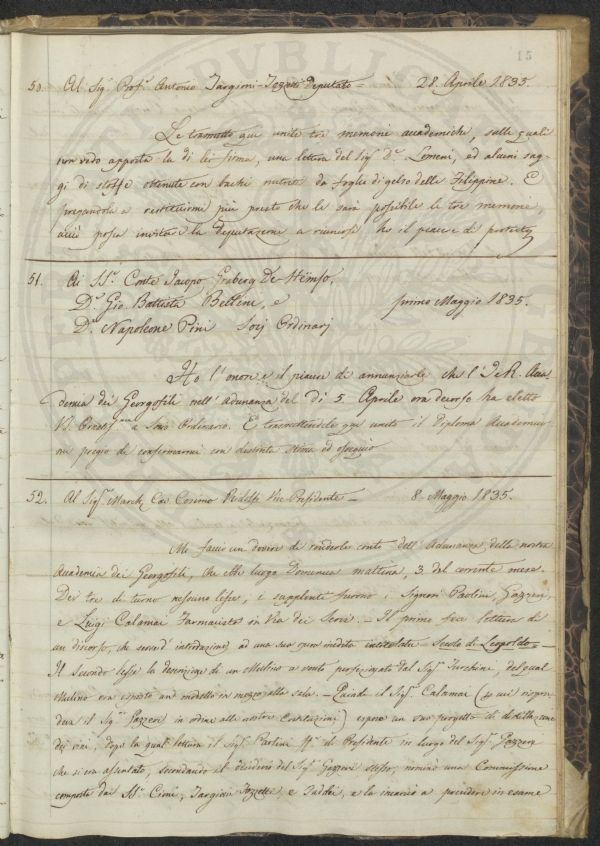 15
50. Al Sig.r Prof.r Antonio Targioni-Tozzetti Deputato = 28. Aprile 1835.
Le trasmetto qui unite tre memorie accademiche, sulle quali
non vedo apposta la di lei firma, una lettera del Sig.r D.r Lomeni, ed alcuni sag-
gi di stoffe ottenute con bachi nutriti da foglie di gelso delle Filippine. E
pregandola a restituirmi più presto che le sarà possibile le tre memorie,
acciò possa invitare la deputazione a riunirsi ho il piacere di
51. Ai SS.i Conte Jacopo Graberg De Hemso,
D.r Gio. Battista Bellini, e primo Maggio 1835.
D.r Napoleone Pini Socj Ordinarj
Ho l'onore e il piacere di annunziarle che l'I. e R. Acca-
demia dei Georgofili nell'Adunanza del dì 5 Aprile ora decorso ha eletto
a Socio Ordinario. E trasmettendole qui unito il Diploma Accademico
mi pregio di confermarmi con distinta stima ed ossequio
52. Al Sig.r March. Cav. Cosimo Ridolfi Vice Presidente = 8. Maggio 1835.
Mi faccio un dovere di renderle conto dell'Adunanza della nostra
Accademia dei Georgofili, che ebbe luogo Domenica mattina, 3. del corrente mese.
Dei tre di turno nessuno lesse, e supplenti furono i Signori Paolini, Gazzeri,
e Luigi Calamai Farmacista in Via dei Servi. = Il primo fece lettura di
un discorso, che servirà d'introduzione ad una sua opera inedita intitolata = Scuola di Leopoldo =
Il secondo lesse la descrizione di un Mulino a vento perfezionato dal Sig.r Turchini, del qual
Mulino era esposto un modello in mezzo alla sala. = Quindi il Sig.r Calamai (a cui rispon-
deva il Sig.r Gazzeri in ordine alle nostre Costituzioni) espose un suo progetto di distillazione
dei vini, dopo la qual lettura il Sig.r Paolini ff. di Presidente in luogo del Sig.r Gazzeri
che si era assentato, secondando il desiderio del Sig.r Gazzeri stesso, nominò una Commissione
composta dai SS.i Cioni, Targioni Tozzetti, e Taddei, e la incaricò a prendere in esame